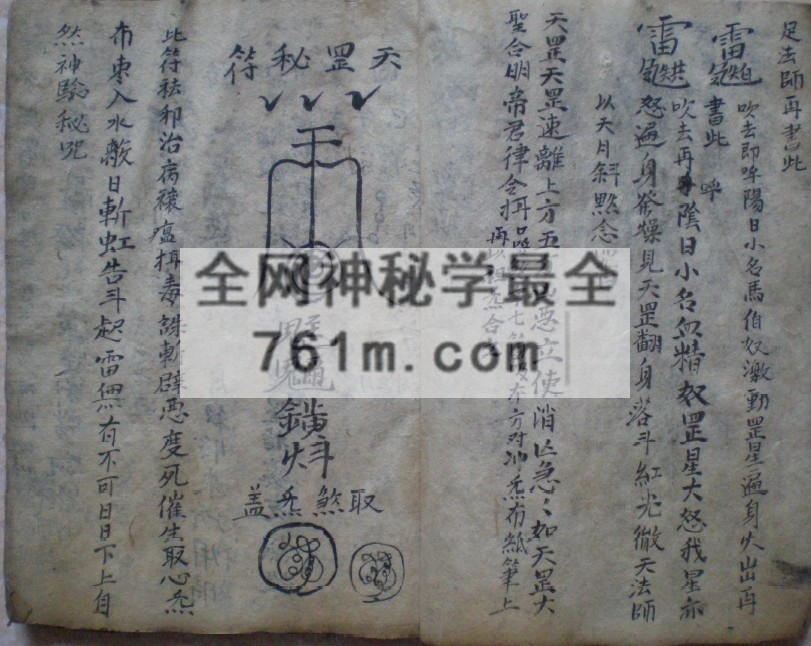 足法師再書此
雷 吹去即呼陽日小名馬伯奴激動罡星遍身火出再
書此
雷 吹去再呼陰日小名血精奴罡星大怒我星亦
怒遍身發燥見天罡翻身落斗紅光徹天法師
以天月斜㸃念
天罡天罡速離上方五 惡立使消亡急々如天罡大
聖合明帝君律令 左方对冲炁布紙筆上
再 炁合
天罡秘符
取煞炁盖
此符祛邪治病禳瘟揖毒誅斬辟惡度死催生取心炁
布東入水 日斬虹告斗起雷無有不可日日下上自
然神驗秘咒
全网神秘学最全
761m.com